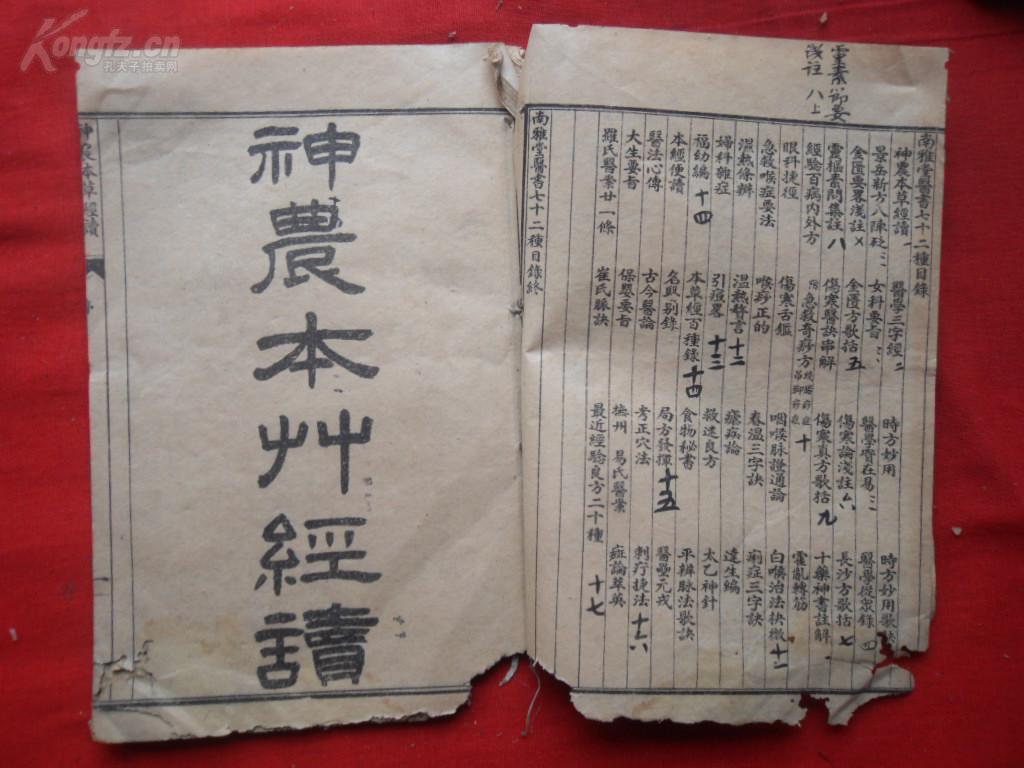 Kongfz.cn
孔夫子拍卖网
灵素節要
淺註 八上
南雅堂醫書七十二種目錄
神農本草經讀 一 醫學三字經 二 時方妙用 時方妙用歌訣
景岳新方八陳砭 三 女科要旨 三 醫學實在易 三 醫學從衆錄 四
金匱要畧淺註 金匱方歌括 五 傷寒論淺註 六 長沙方歌括 七
靈樞素問集註 八 傷寒醫訣串解 傷寒真方歌括 九 十藥神書註解
經驗百病內外方 急救奇痧方 十 霍亂轉筋
眼科捷徑 傷寒舌鑑 咽喉脉證通論 白喉治法抉微 十一
急救喉症要法 喉痧正的 春溫三字訣 痢症三字訣
溫熱條辨 溫熱贅言 十二 瘧病論 達生編
婦科雜症 引痘畧 十三 救迷良方 太乙神針
福幼編 十四 本草經百種錄 十四 食物秘書 平辨脉法歌訣
本經便讀 名醫別錄 局方發揮 十五 醫壘元戎
醫法心傳 古今醫論 考正穴法 刺疔捷法 十六
大生要旨 保嬰要旨 撫州 易氏醫案 痧論萃英
羅氏醫案廿一條 崔氏脉訣 最近經驗良方二十種 十七
南雅堂醫書七十二種目錄終
神農本艸經讀
神農本草經讀
序
一